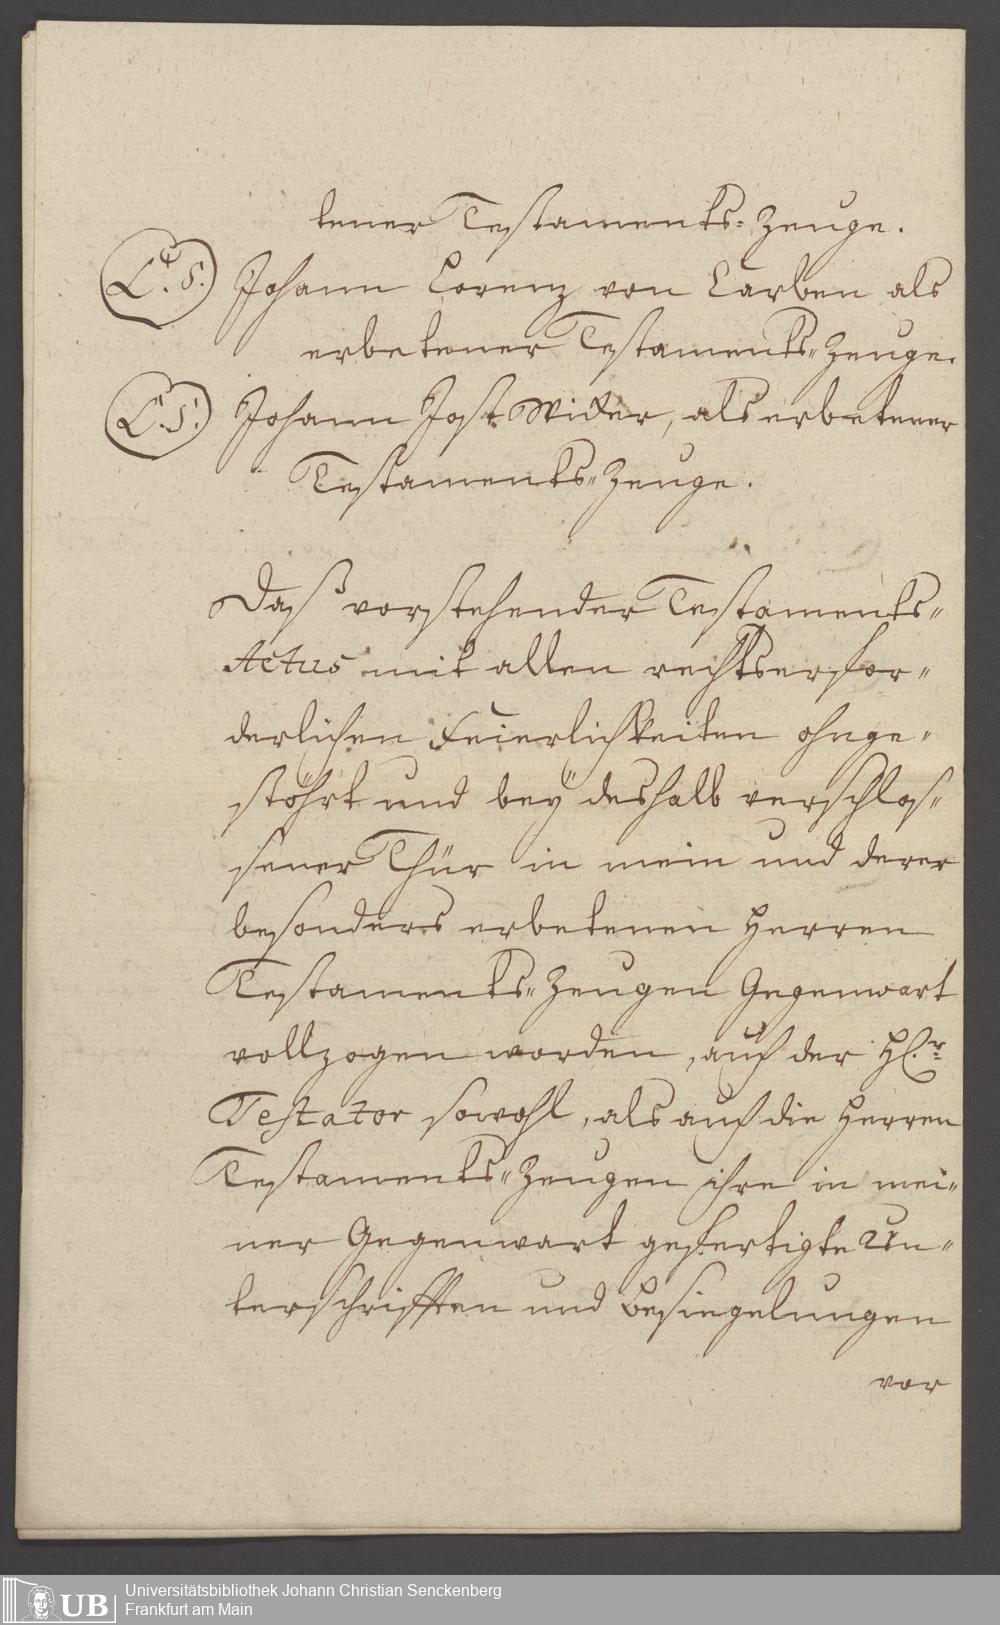 tener Testaments-Zeuge.
L. S. Johann Lorenz von Carben als
erbetener Testaments-Zeuge.
L. S. Johann Jost Wicker, als erbetener
Testaments-Zeuge.
Daß vorstehender Testaments-
Actus mit allen rechtserfor-
derlichen Feierlichkeiten ohnge-
stöhrt und beÿ deshalb verschlos-
sener Thür in mein und derer
besonders erbetenen Herren
Testaments-Zeugen Gegenwart
vollzogen worden, auch der H.r
Testator sowohl, als auch die Herren
Testaments-Zeugen ihre in mei-
ner Gegenwart gefertigte Un-
terschrifften und Besiegelungen
vor
UB Universitätsbibliothek Johann Christian Senckenberg
Frankfurt am Main